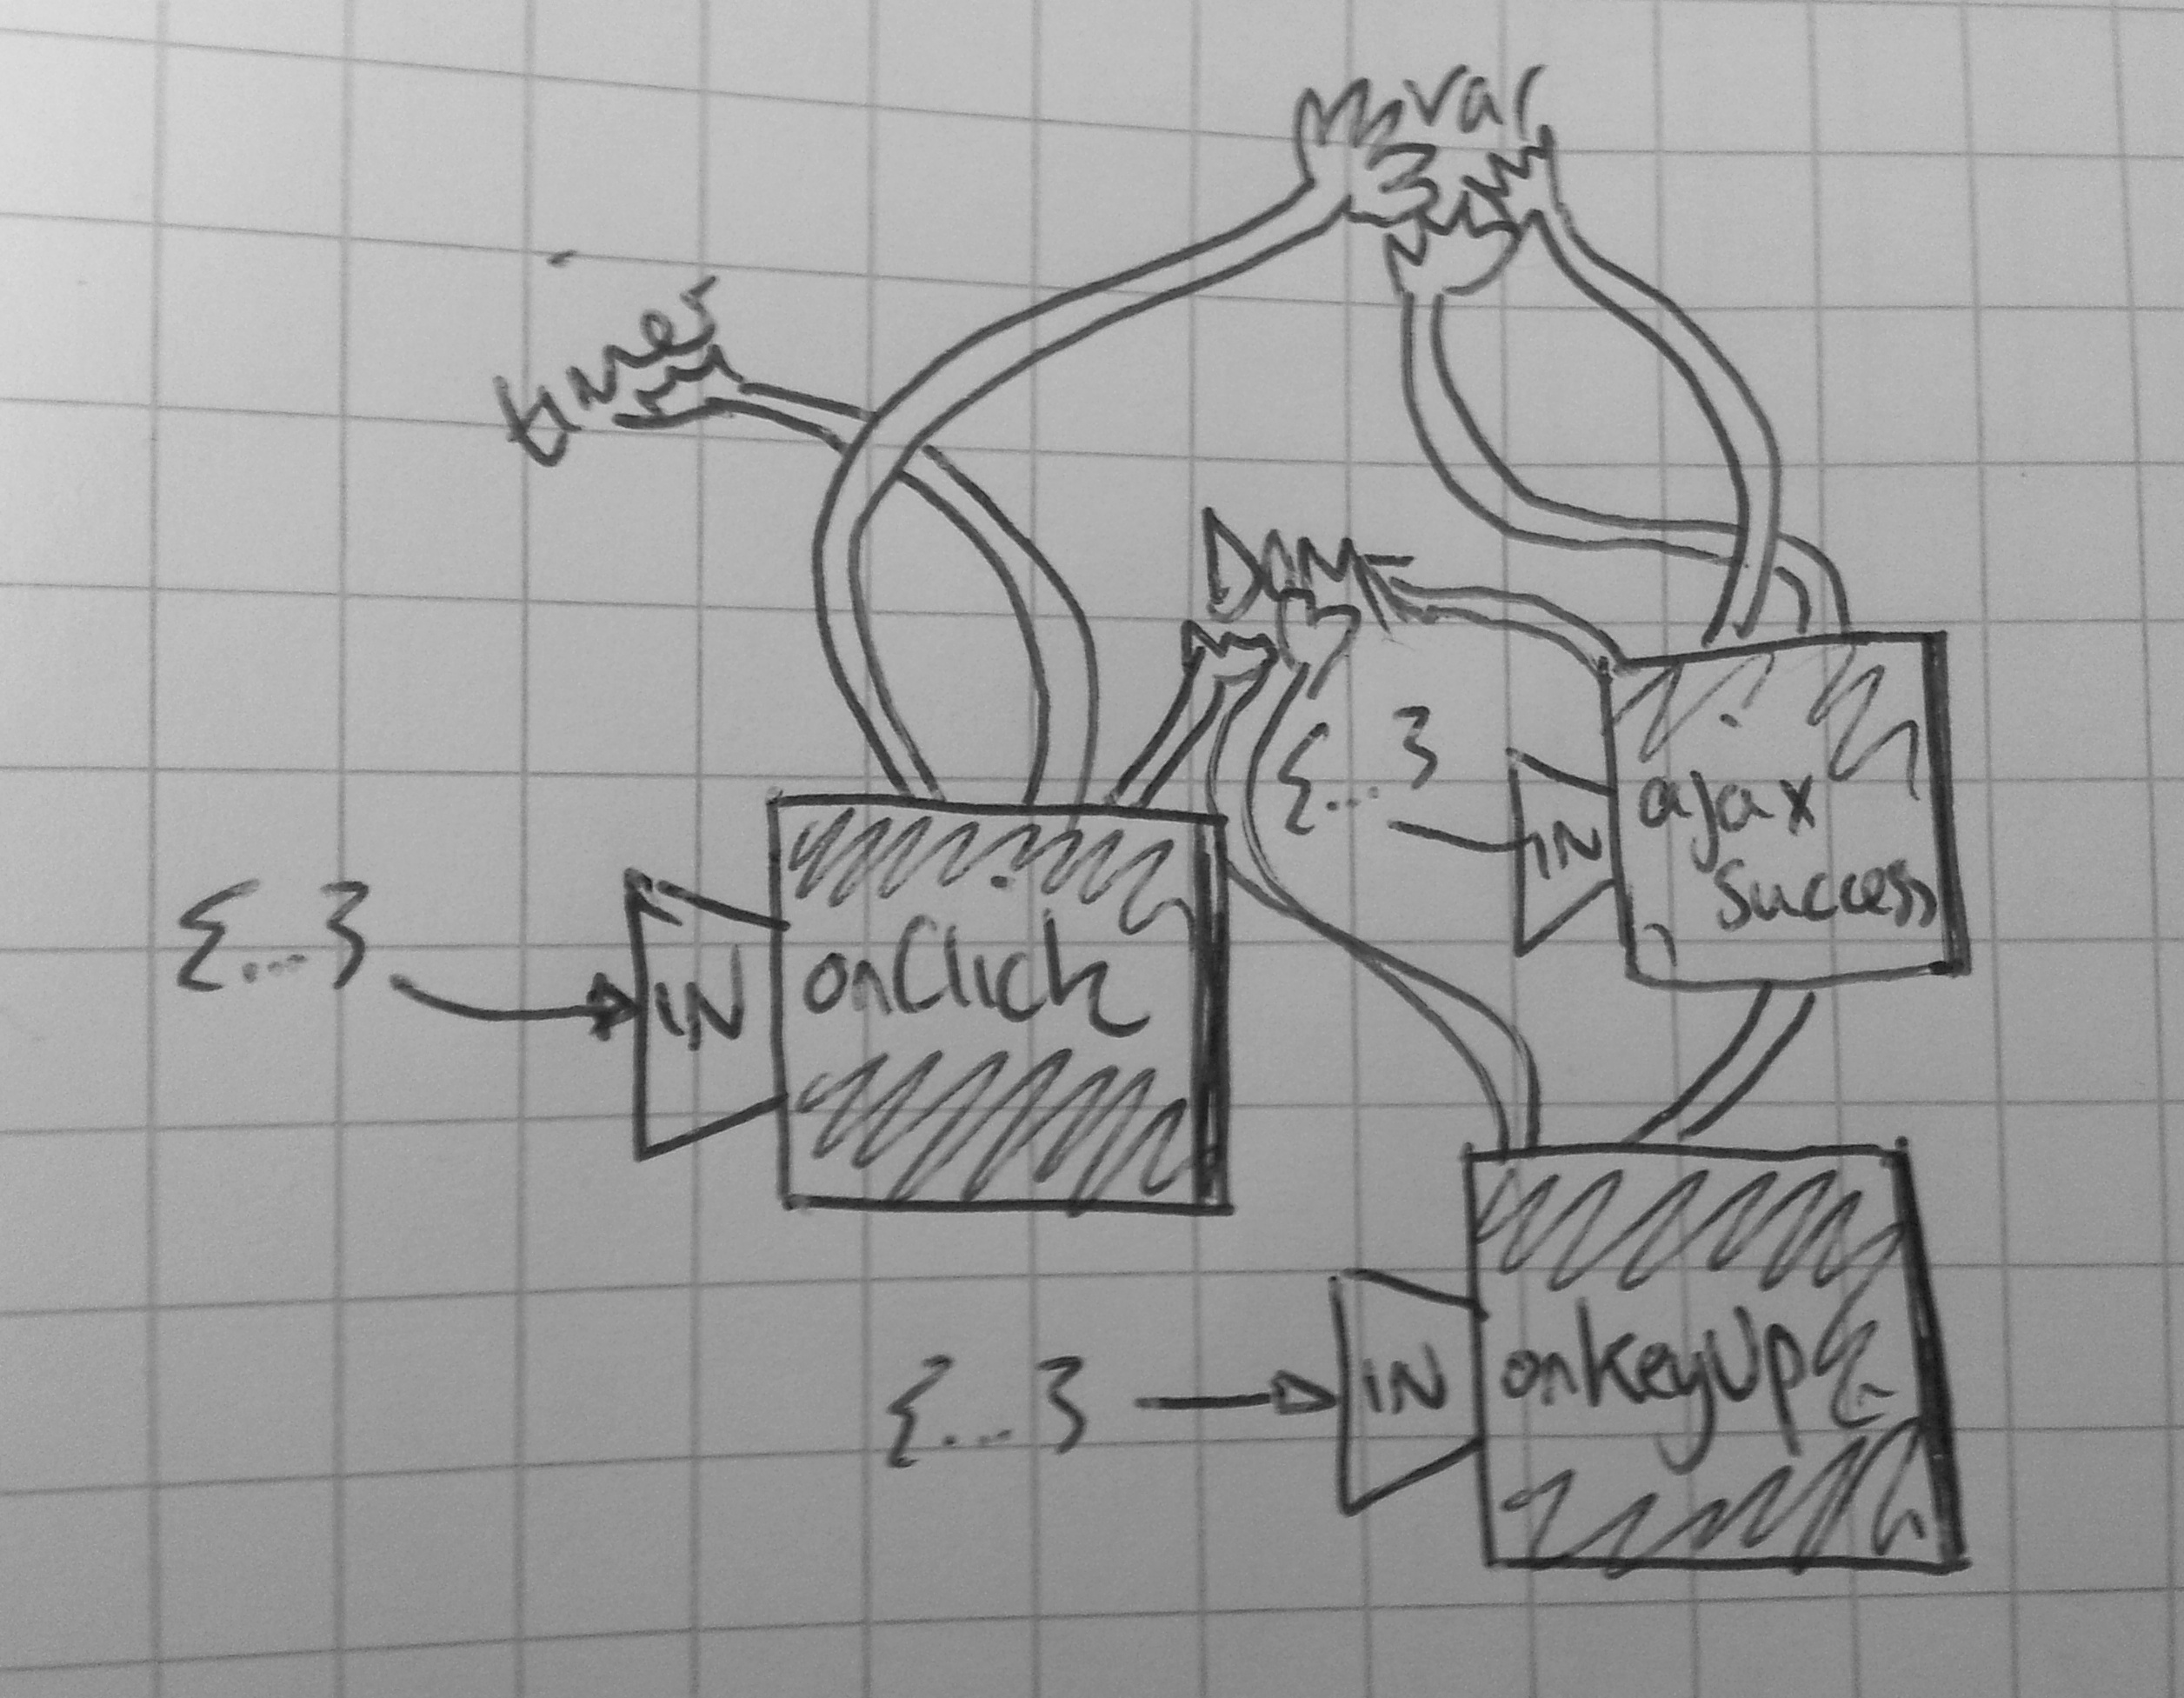 var
timer
DOM
{...}
IN
ajax
success
{...}
IN
onClick
{...}
IN
onKeyUp